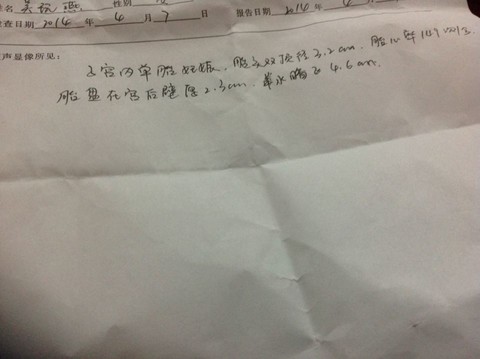 姓名 性别
检查日期 2014 年 4 月 7 日 报告日期 2014 年 4 月
声显像所见：
子宫内单胎妊娠，胎头双顶径3.2cm，胎心率
胎盘在宫后壁厚2.3cm，羊水暗区4.6cm.